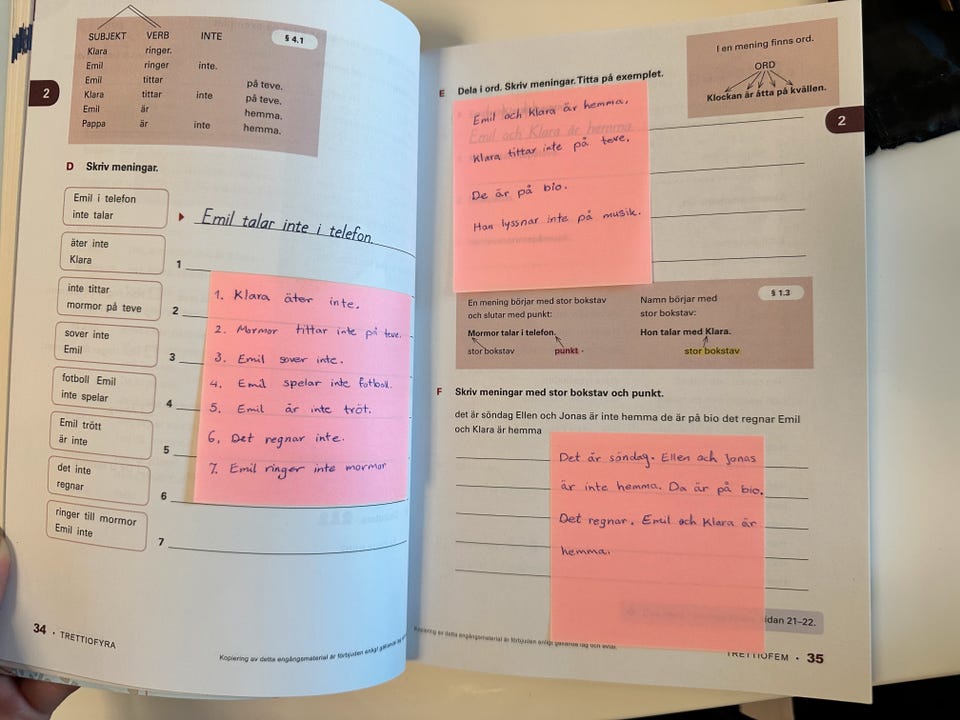 SUBJEKT VERB INTE
§ 4.1
Klara ringer.
Emil ringer inte.
Emil tittar på teve.
Klara tittar inte på teve.
Emil är hemma.
Pappa är inte hemma.
2
D Skriv meningar.
Emil i telefon
inte talar
Emil talar inte i telefon.
äter inte
Klara
1
inte tittar
mormor på teve
2
sover inte
Emil
3
fotboll Emil
inte spelar
4
Emil trött
är inte
5
det inte
regnar
6
ringer till mormor
Emil inte
7
1. Klara äter inte.
2. Mormor tittar inte på teve.
3. Emil sover inte.
4. Emil spelar inte fotboll.
5. Emil är inte tröt.
6. Det regnar inte.
7. Emil ringer inte mormor
34 • TRETTIOFYRA
Kopiering av detta engångsmaterial är förbjuden enligt gällande lag
I en mening finns ord.
ORD
Klockan är åtta på kvällen.
2
E Dela i ord. Skriv meningar. Titta på exemplet.
Emil och Klara är hemma.
Emil och Klara är hemma.
Klara tittar inte på teve.
De är på bio.
Han lyssnar inte på musik.
§ 1.3
En mening börjar med stor bokstav
och slutar med punkt:
Mormor talar i telefon.
stor bokstav punkt .
Namn börjar med
stor bokstav:
Hon talar med Klara.
stor bokstav
F Skriv meningar med stor bokstav och punkt.
det är söndag Ellen och Jonas är inte hemma de är på bio det regnar Emil
och Klara är hemma
Det är söndag. Ellen och Jonas
är inte hemma. Da är på bio.
Det regnar. Emil och Klara är
hemma.
sidan 21–22.
Kopiering av detta engångsmaterial är förbjuden enligt gällande lag och avtal.
TRETTIOFEM • 35